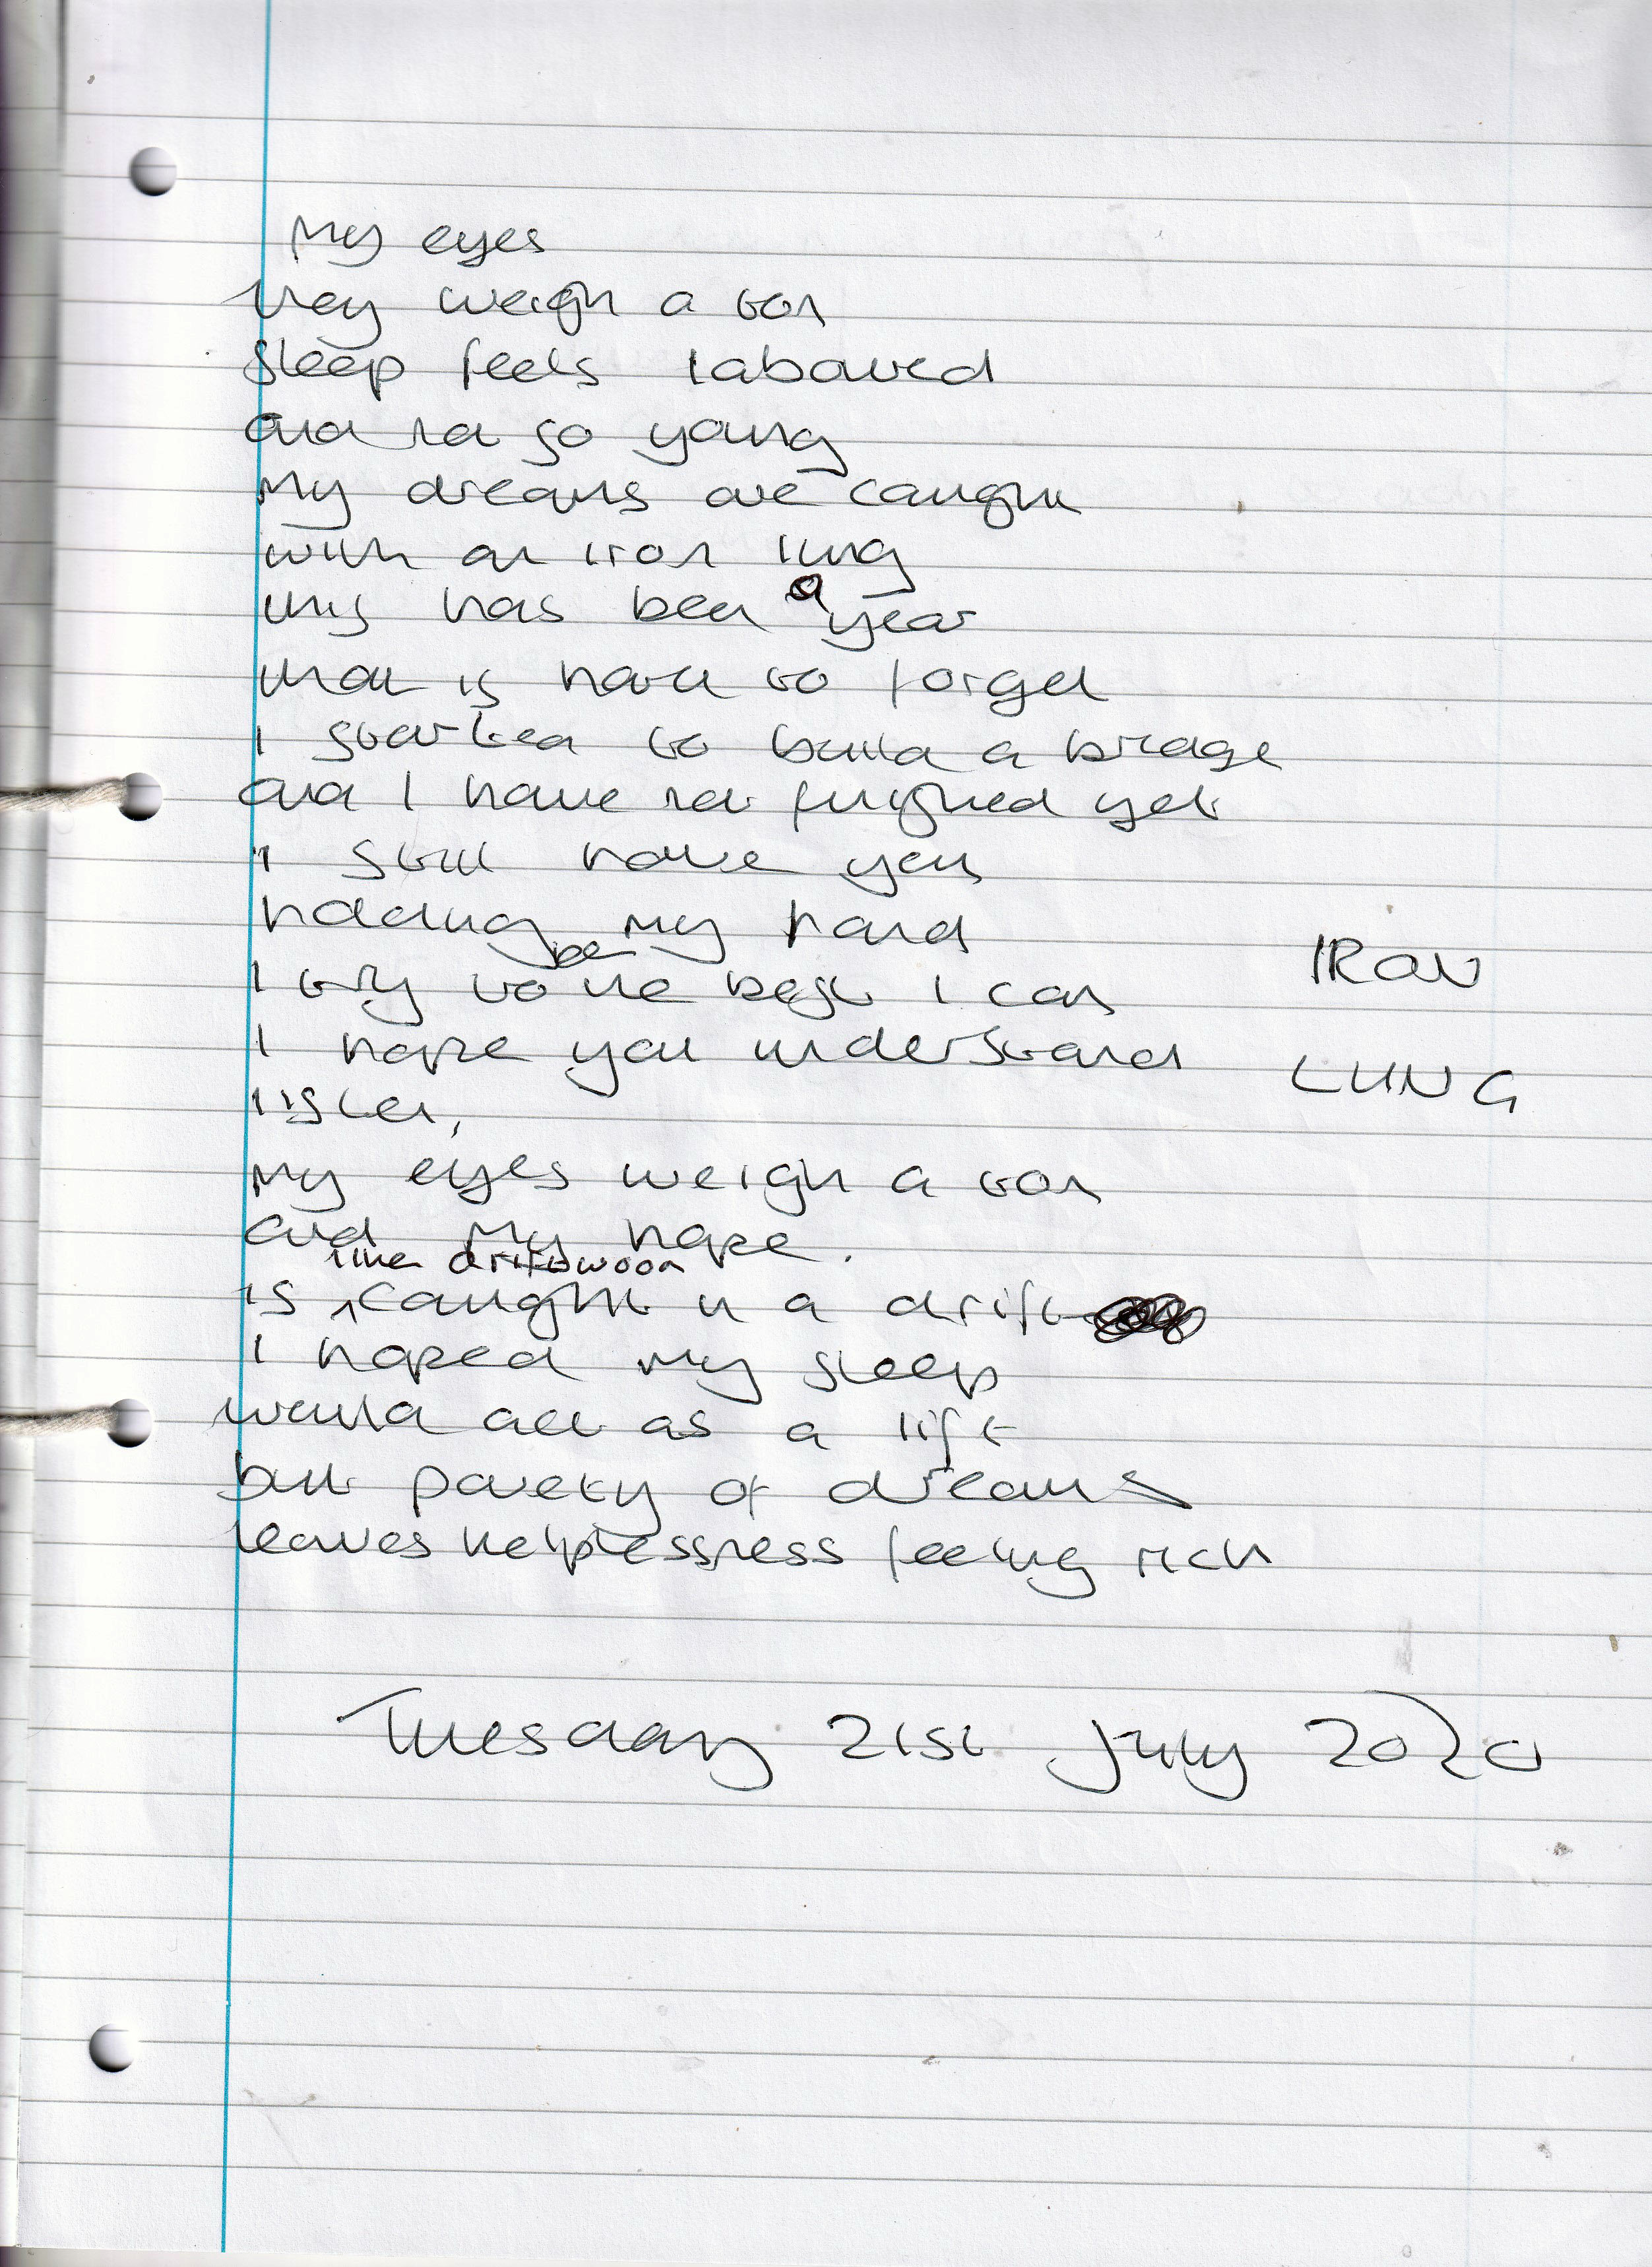 My eyes
they weigh a ton
sleep feels laboured
and not so young
My dreams are caught
with an iron lung
this has been a year
that is hard to forget
I started to build a bridge
and I have not finished yet
I still have you
holding my hand
I try to be the best I can
IRON
I hope you understand
LUNG
listen,
My eyes weigh a ton
and my hope.
like driftwood
is caught in a drift
I hoped my sleep
would act as a lift
but poverty of dreams
leaves helplessness feeling rich
Tuesday 21st July 2020